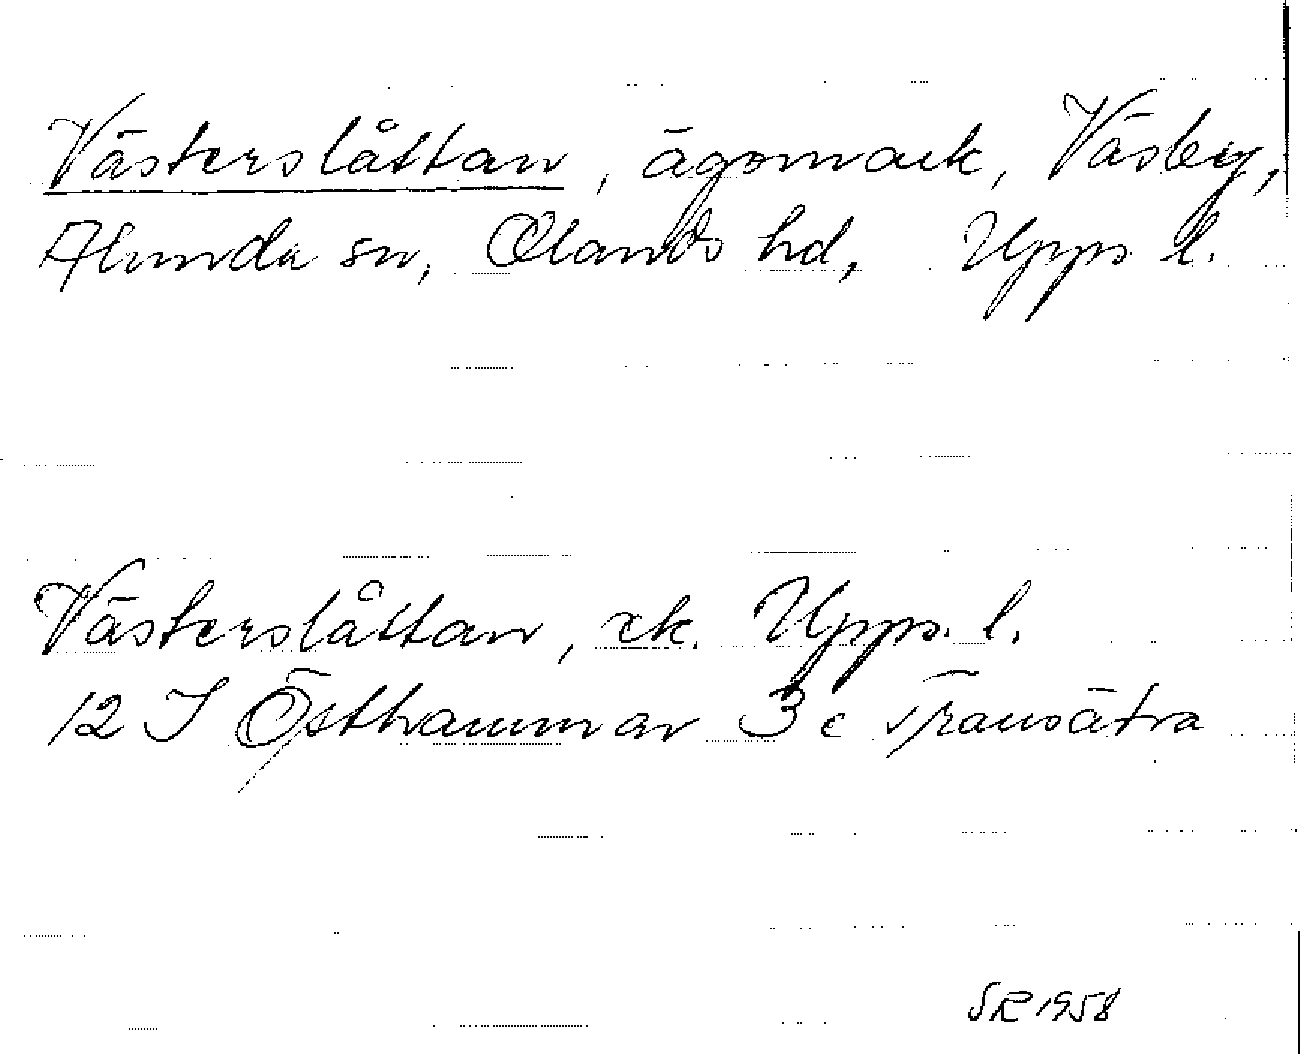 Västerslåttan, ägomark, Väsby,
Alunda sn, Olands hd, Upps. l.
Västerslåttan, ek. Upps. l.
12 I Östhammar 3 c Transätra
SR 1958